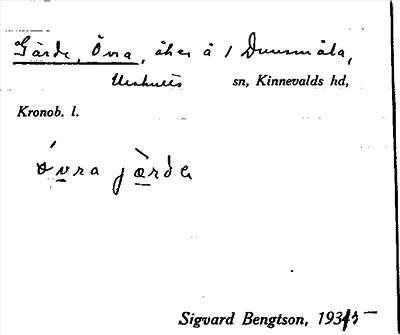 Gärde, Övra, åker å 1 Duusmåla,
Urshults sn, Kinnevalds hd,
Kronob. l.
óvra jæ̀rde
Sigvard Bengtson, 1935